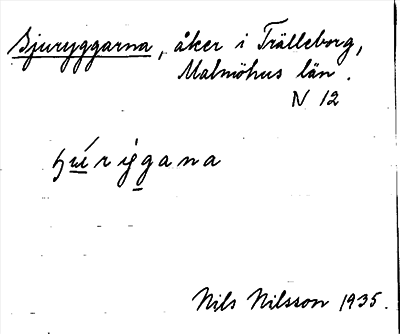 Bjuryggarna, åker i Trälleborg,
Malmöhus län.
N 12
Nils Nilsson 1935.